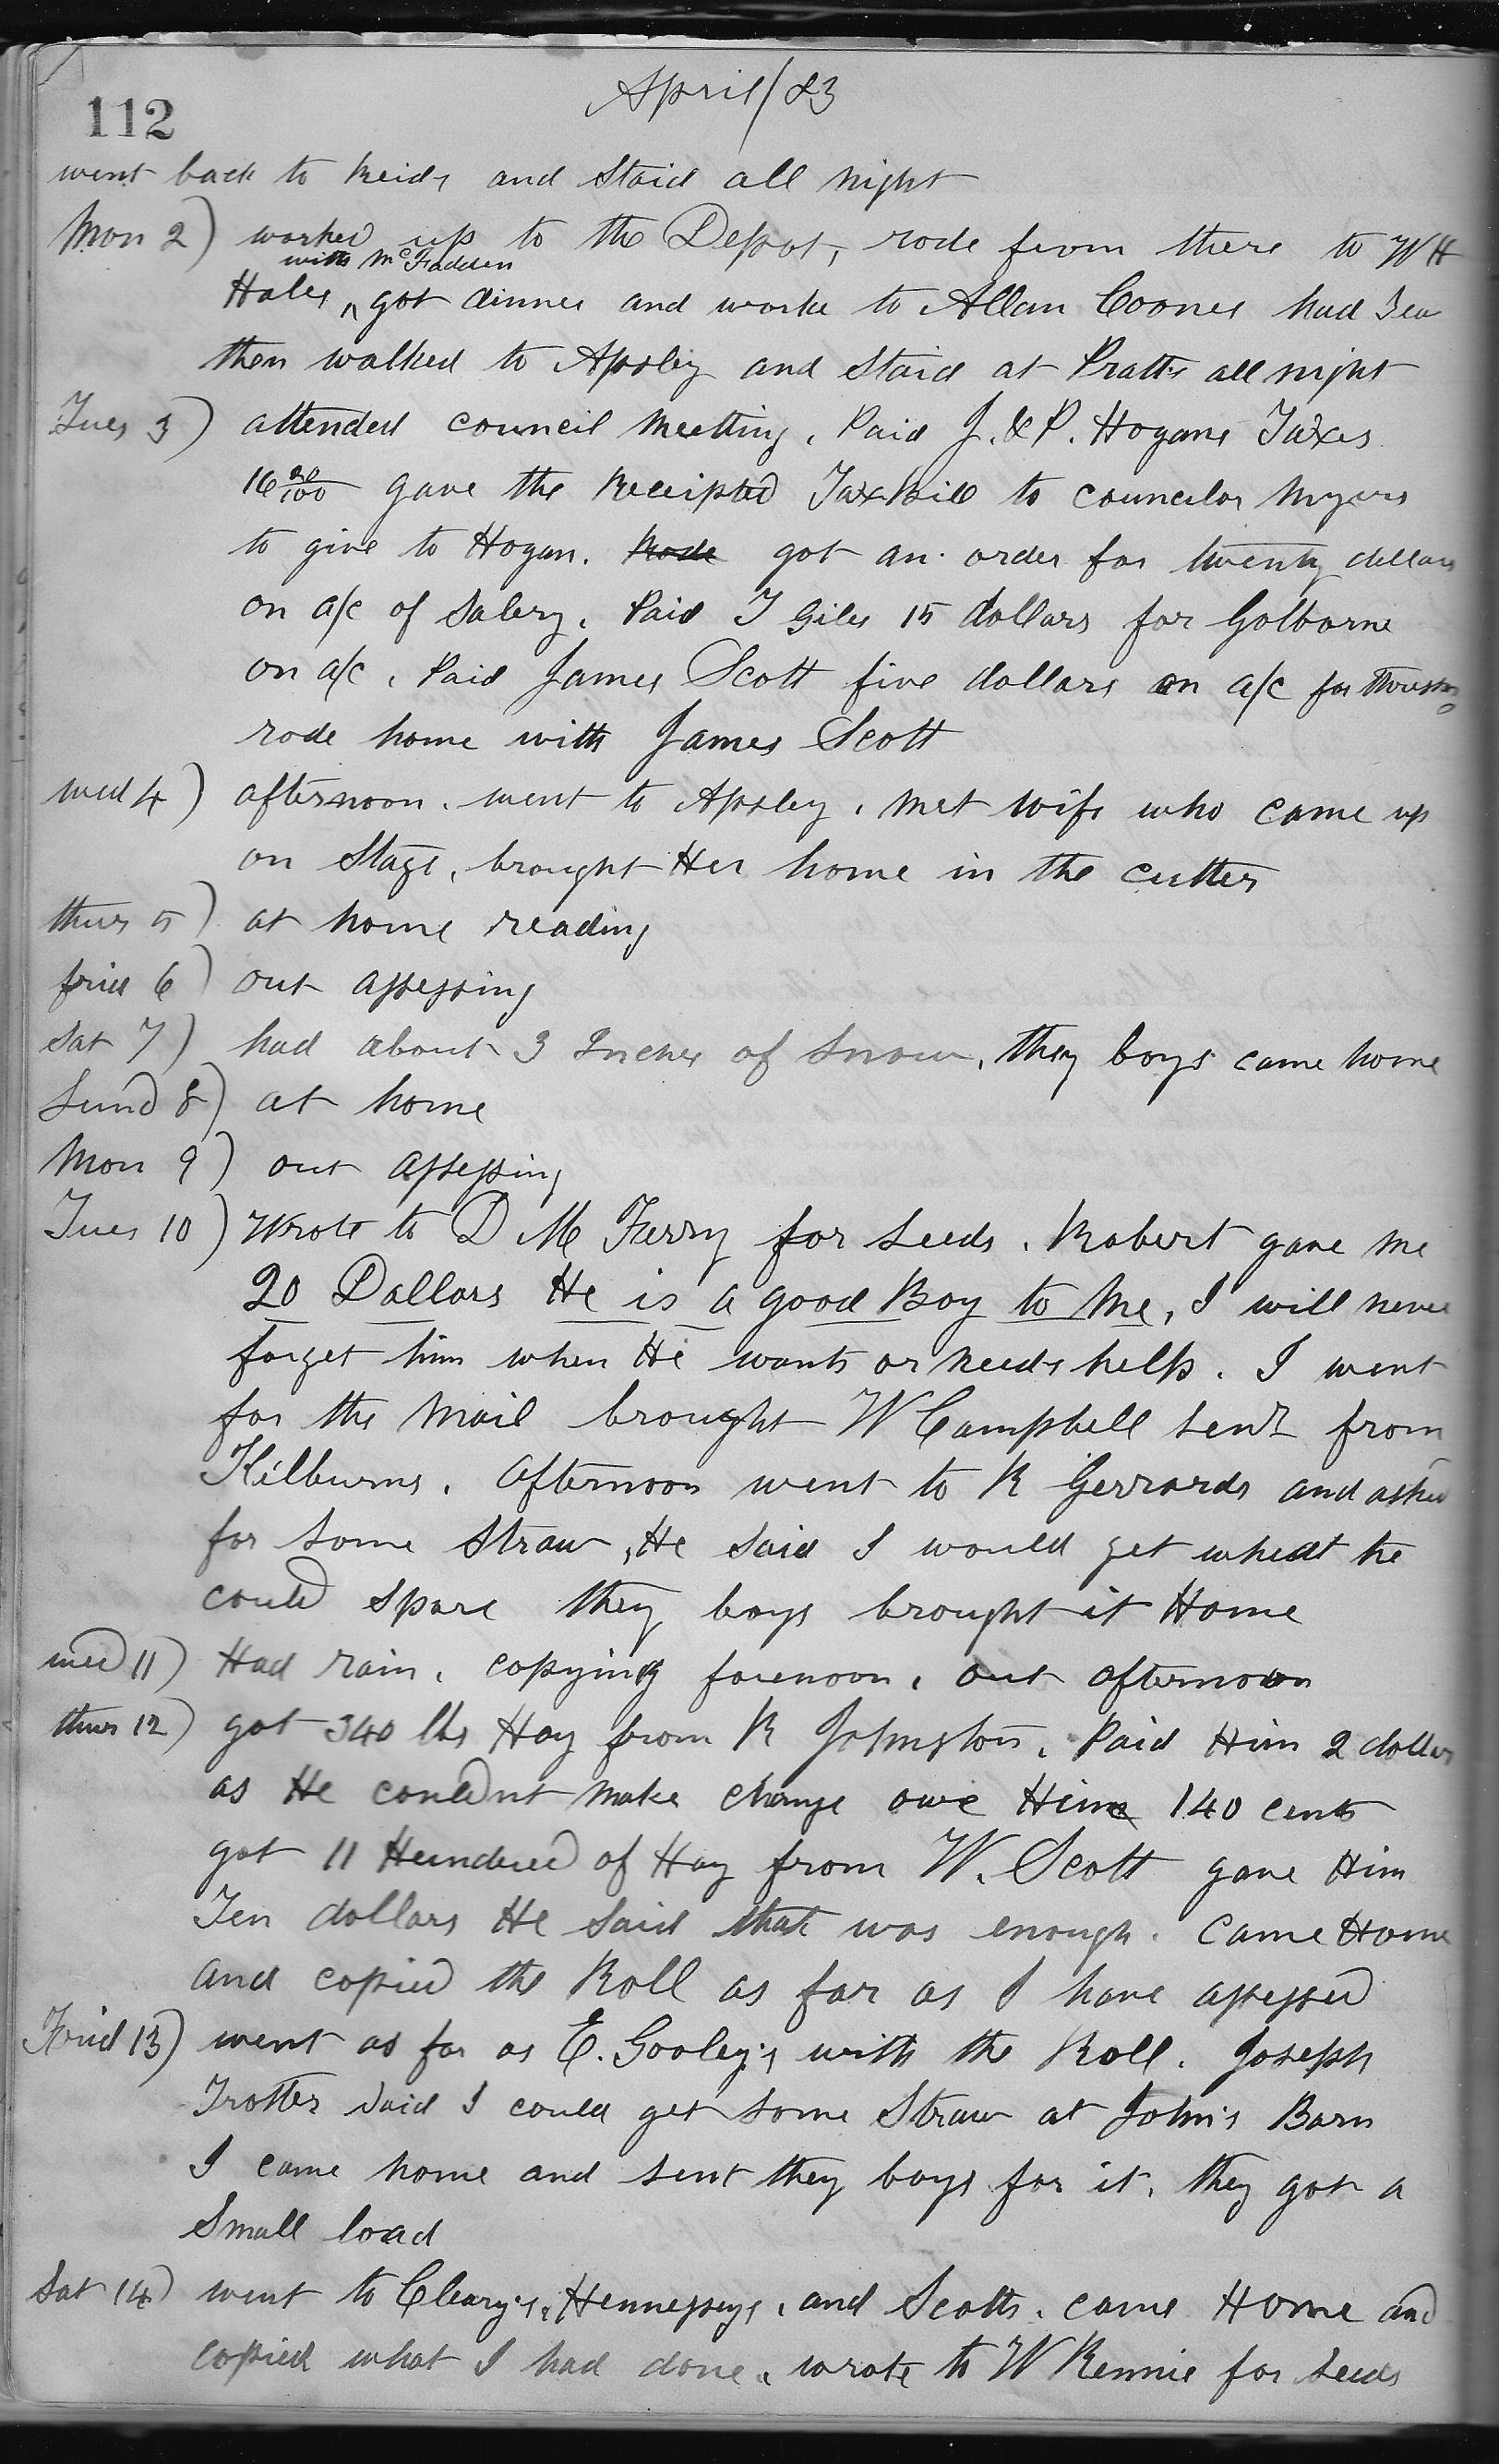 112
April/83
went back to Reids and Staid all night
Mon 2) worked up to the Depot, rode from there to W H
with McFadden
Hales ^ got dinner and worke to Allan Coones had Tea
then walked to Apsley and Staid at Pratts all night
Tues 3) attended council meeting. Paid J. & P. Hogans Taxes
16 20/100 gave the Receipted Tax Bill to councelor Myers
to give to Hogan. Rode got an order for twenty dollars
on a/c of Salery. Paid T Giles 15 dollars for Golborne
on a/c. Paid James Scott five dollars on a/c for
rode home with James Scott
wed 4) afternoon. went to Apsley. met wife who came up
on Stage, brought Her home in the cutter
thurs 5) at home reading
frid 6) out assessing
Sat 7) had about 3 Inches of Snow, they boys came home
Sund 8) at home
Mon 9) out assessing
Tues 10) Wrote to D M Ferry for seeds. Robert gave me
20 Dollars He is a good Boy to Me, I will never
forget him when He wants or needs help. I went
for the Mail brought W Campbell sent from
Kilburns. afternoon went to R Gerrards and asked
for some straw, He said I would get wheat he
could spare they boys brought it Home
wed 11) Had rain. copying forenoon. out afternoon
thurs 12) got 340 lbs Hay from R Johnston. Paid Him 2 dollars
as He couldnt make change owe Him 140 cents
got 11 Hundred of Hay from W. Scott gave Him
Ten dollars He said that was enough. came Home
and copied the Roll as far as I have assessed
Frid 13) went as far as E. Gooley's with the Roll. Joseph
Trotter said I could get some Straw at John's Barn
I came home and sent they boys for it. they got a
Small load
Sat 14) went to Cleary's, Hennessys, and Scotts. came Home and
copied what I had done. wrote to W Rennie for seeds